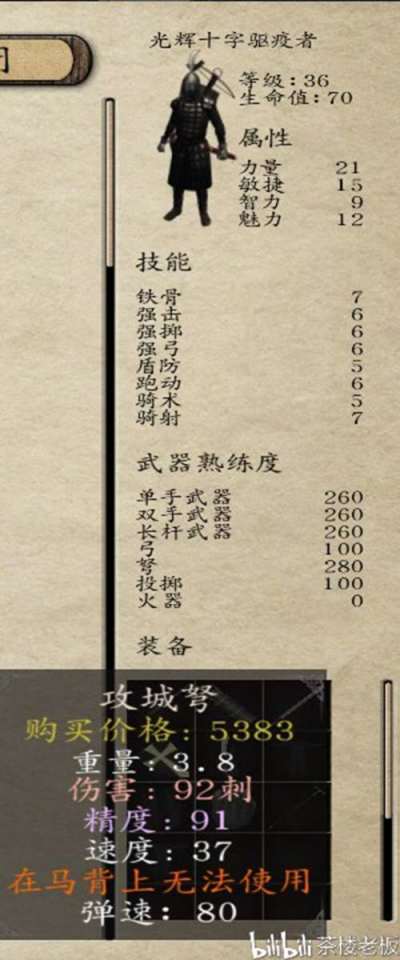 光辉十字驱疫者
等级:36
生命值:70
属性
力量 21
敏捷 15
智力 9
魅力 12
技能
铁骨 7
强击 6
强掷 6
强弓 6
盾防 5
跑动 6
骑术 5
骑射 7
武器熟练度
单手武器 260
双手武器 260
长杆武器 260
弓 100
弩 280
投掷 100
火器 0
装备
攻城弩
购买价格:5383
重量:3.8
伤害:92刺
精度:91
速度:37
在马背上无法使用
弹速:80
bilibili 茶楼老板